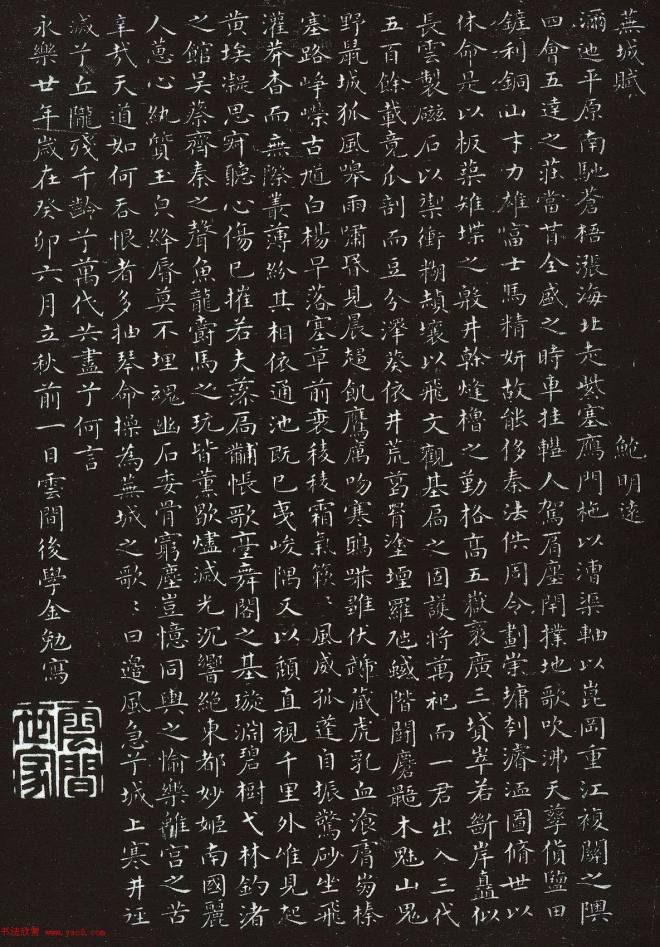 蕪城賦 鮑明遠
瀰迤平原南馳蒼梧漲海北走紫塞鴈門柂以漕渠軸以崑岡重江複關之隩
四會五達之莊當昔全盛之時車挂轊人駕肩廛閈撲地歌吹沸天孳貨鹽田
鏟利銅山才力雄富士馬精妍故能侈秦法佚周令劃崇墉刳濬洫圖脩世以
休命是以板築雉堞之殷井幹烽櫓之勤格高五嶽袤廣三墳崒若斷岸矗似
長雲製磁石以禦衝糊赬壤以飛文觀基扃之固護將萬祀而一君出入三代
五百餘載竟瓜剖而豆分澤葵依井荒葛罥塗壇羅虺蜮階鬭麏鼯木魅山鬼
野鼠城狐風嘷雨嘯昏見晨趨飢鷹厲吻寒鴟嚇雛伏虣藏虎乳血飡膚崩榛
塞路崢嶸古馗白楊早落塞草前衰稜稜霜氣簌〻風威孤蓬自振驚砂坐飛
灌莽杳而無際叢薄紛其相依通池既已夷峻隅又以頹直視千里外唯見起
黃埃凝思寂聽心傷已摧若夫藻扃黼帳歌臺舞閣之基璇淵碧樹弋林釣渚
之館吳蔡齊秦之聲魚龍爵馬之玩皆薰歇燼滅光沉響絕東都妙姬南國麗
人蕙心紈質玉皃絳脣莫不埋魂幽石委骨窮塵豈憶同輿之愉樂離宮之苦
辛哉天道如何吞恨者多抽琴命操為蕪城之歌〻曰邊風急兮城上寒井逕
滅兮丘隴殘千齡兮萬代共盡兮何言
永樂廿年歲在癸卯六月立秋前一日雲間後學金勉寫
雲間世家
书法欣赏 www.yac8.com